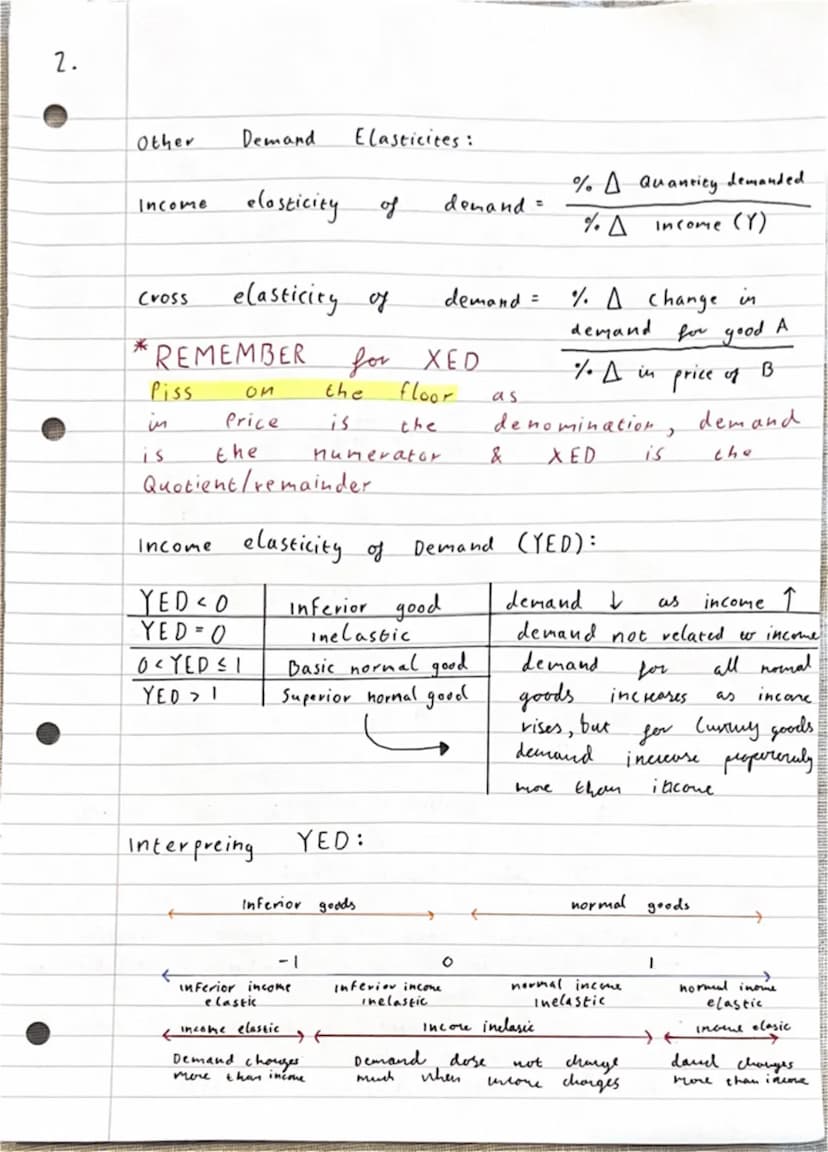 2.
Other Demand Elasticites:
Income elasticity of demand = % Δ Quantity demanded
% Δ income (Y)
Cross elasticity of demand = % Δ change in
demand for good A
% Δ in price of B
*REMEMBER for XED
Piss on the floor as
in Price is the denomination, demand
is the numerator & XED is the
Quotient/remainder
Income elasticity of Demand (YED):
YED < 0 Inferior good demand ↓ as income ↑
YED = 0 inelastic demand not related to income
0 < YED ≤ 1 Basic normal good demand for all normal
YED > 1 Superior normal good goods increases as income
rises, but for luxury goods
demand increase
more than income
Interpreing YED:
Inferior goods normal goods
-1 0 1
inferior income inferior income normal income normal income
elastic inelastic inelastic elastic
income elastic Income inelasic income elasic
Demand changes Demand dose not change changes
more than income much when income changes more than income